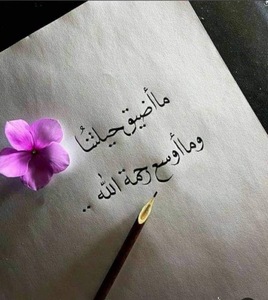 ما أضيق حيلتنُا
وما أوسع رحمة الله ..